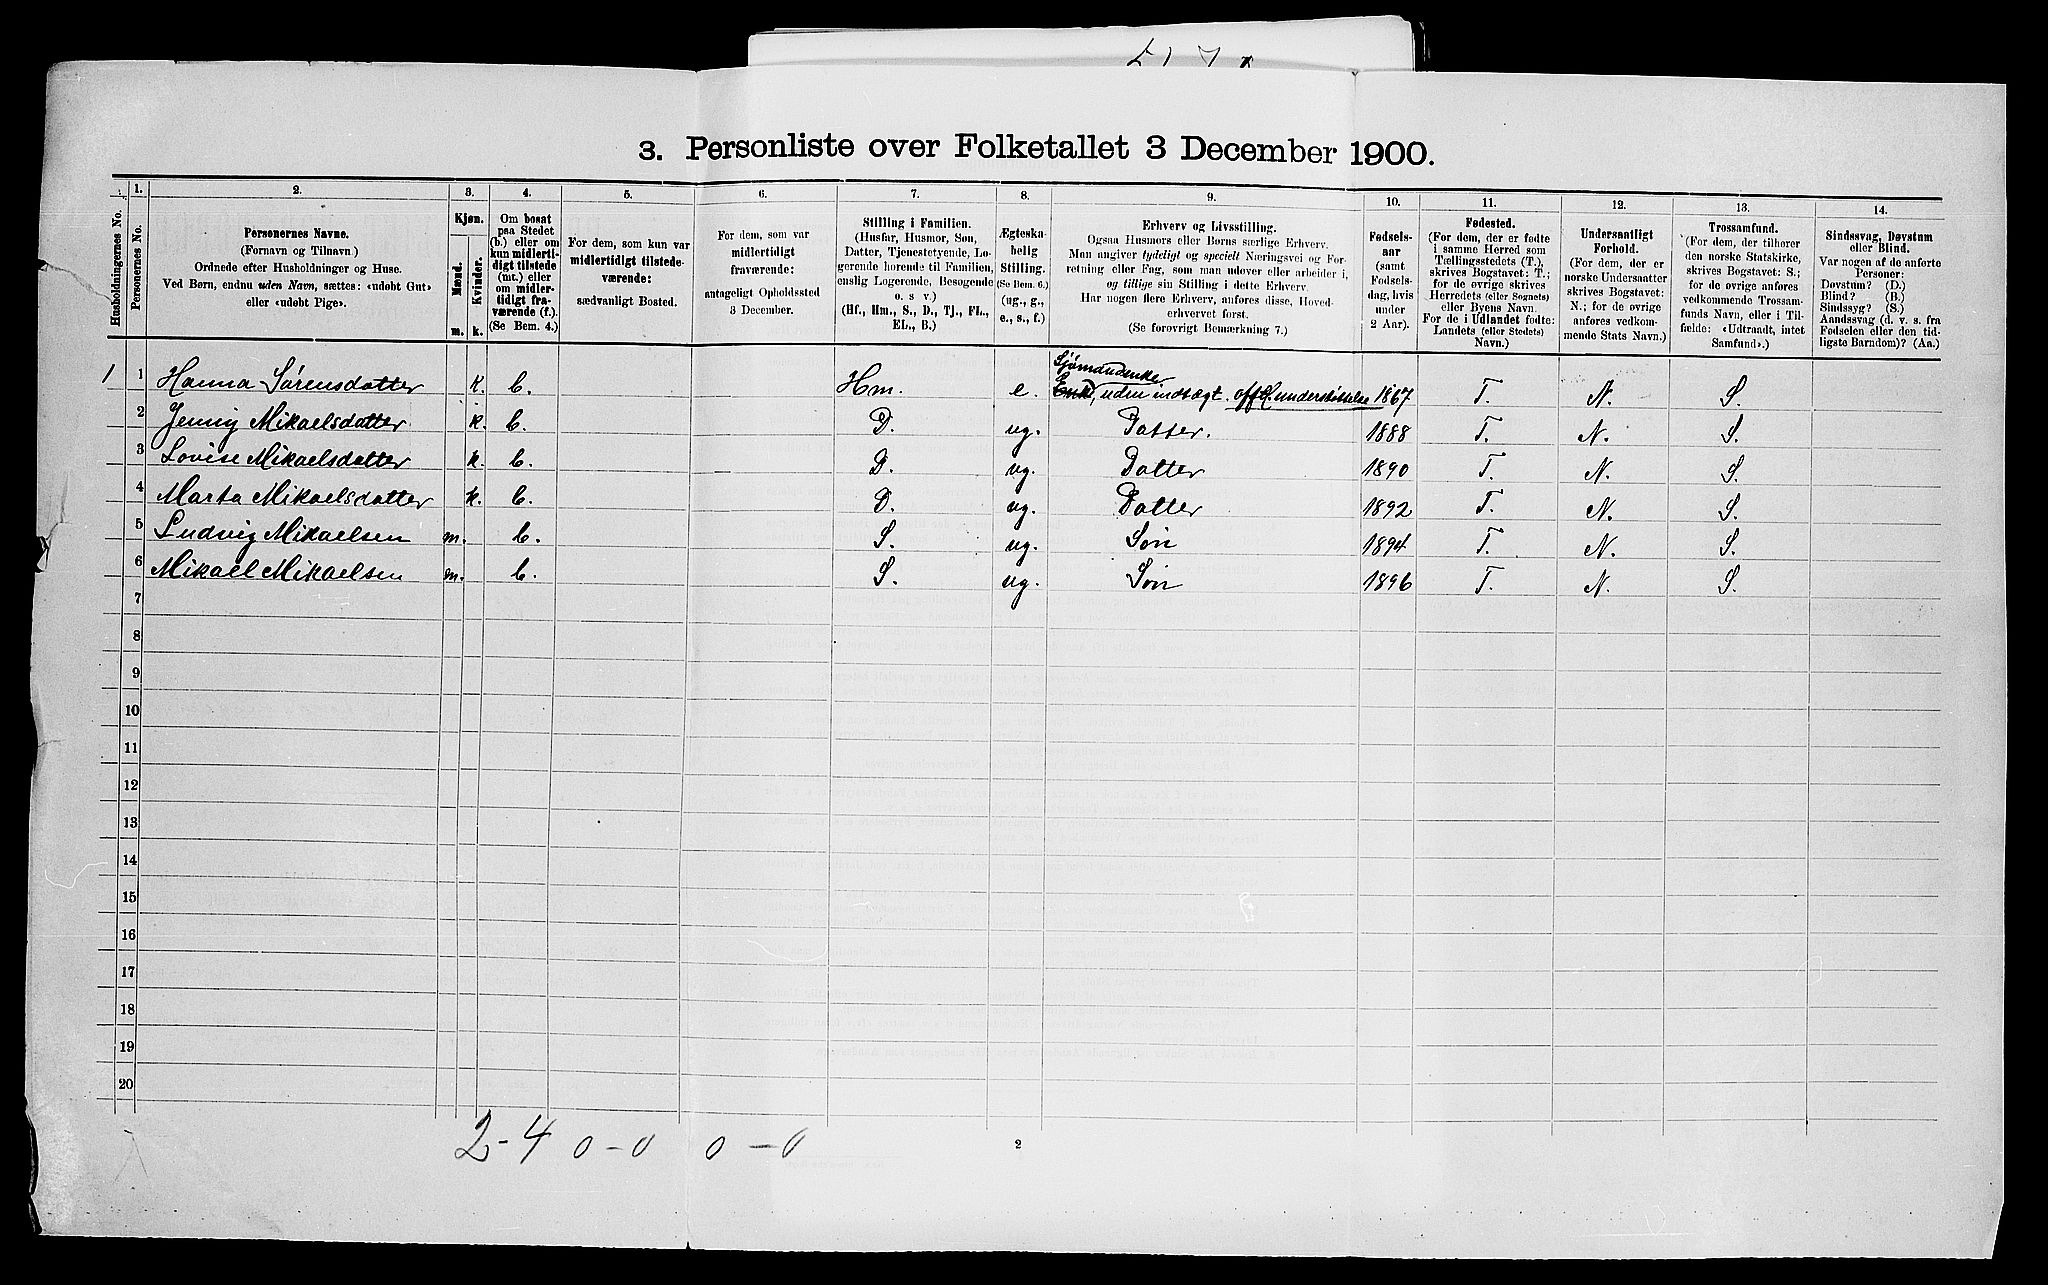 3. Personliste over Folketallet 3 December 1900.
Husholdningernes No.
1.
Personernes No.
2.
Personernes Navne.
(Fornavn og Tilnavn.)
Ordnede efter Husholdninger og Huse.
Ved Børn, endnu uden Navn, sættes: «udøbt Gut»
eller «udøbt Pige».
3.
Kjøn.
Mænd.
Kvinder.
m. k.
4.
Om bosat
paa Stedet
(b.) eller om
kun midlerti-
digt tilstede
(mt.) eller
om midler-
tidigt fra-
værende (f.).
(Se Bem. 4.)
5.
For dem, som kun var
midlertidigt tilstede-
værende:
sædvanligt Bosted.
6.
For dem, som var
midlertidigt
fraværende:
antageligt Opholdssted
3 December.
7.
Stilling i Familien.
(Husfar, Husmor, Søn,
Datter, Tjenestetyende, Lo-
gerende hørende til Familien,
enslig Logerende, Besøgende
o. s v.)
(Hf., Hm., S., D., TJ., FL.,
EL., B.)
8.
Ægteska-
belig
Stilling.
(Se Bem. 6.)
(ug., g.,
e., s., f.)
9.
Erhverv og Livsstilling.
Ogsaa Husmors eller Børns særlige Erhverv.
Man angiver tydeligt og specielt Næringsvei og For-
retning eller Fag, som man udøver eller arbeider i,
og tillige sin Stilling i dette Erhverv.
Har nogen flere Erhverv, anføres disse, Hoved-
erhvervet først.
(Se forøvrigt Bemærkning 7.)
10.
Fødsels-
aar
(samt
Fødsels-
dag, hvis
under
2 Aar).
11.
Fødested.
(For dem, der er fødte
i samme Herred som
Tællingsstedets (T.),
skrives Bogstavet: T.;
for de øvrige skrives
Herredets (eller Sognets)
eller Byens Navn.
For de i Udlandet fødte:
Landets (eller Stedets)
Navn.)
12.
Undersaatligt
Forhold.
(For dem, der er
norske Undersaatter
skrives Bogstavet:
N.; for de øvrige
anføres vedkom-
mende Stats Navn.)
13.
Trossamfund.
(For dem, der tilhører
den norske Statskirke,
skrives Bogstavet: S.;
for de øvrige anføres
vedkommende Trossam-
funds Navn, eller i Til-
fælde: «Udtraadt, intet
Samfund».)
14.
Sindssvag, Døvstum
eller Blind.
Var nogen af de anførte
Personer:
Døvstum? (D.)
Blind? (B.)
Sindssyg? (S.)
Aandssvag (d. v. s. fra
Fødselen eller den tid-
ligste Barndom)? (Aa.)
Sjømdudenke
1 1 Hanna Sørensdatter k. b. Hm. e. Enke, uden indtægt. offtl. understøttelse 1867 T. N. S.
2 Jenny Mikaelsdatter k. b. D. ug. Datter. 1888 T. N. S.
3 Lovise Mikaelsdatter k. b. D. ug. Datter 1890 T. N. S.
4 Marta Mikaelsdatter k. b. D. ug. Datter 1892 T. N. S.
5 Ludvig Mikaelsen m. b. S. ug. Søn 1894 T. N. S.
6 Mikael Mikaelsen m. b. S. ug. Søn 1896 T. N. S.
7
8
9
10
11
12
13
14
15
16
17
18
19
20
2-4 0-0 0-0
2